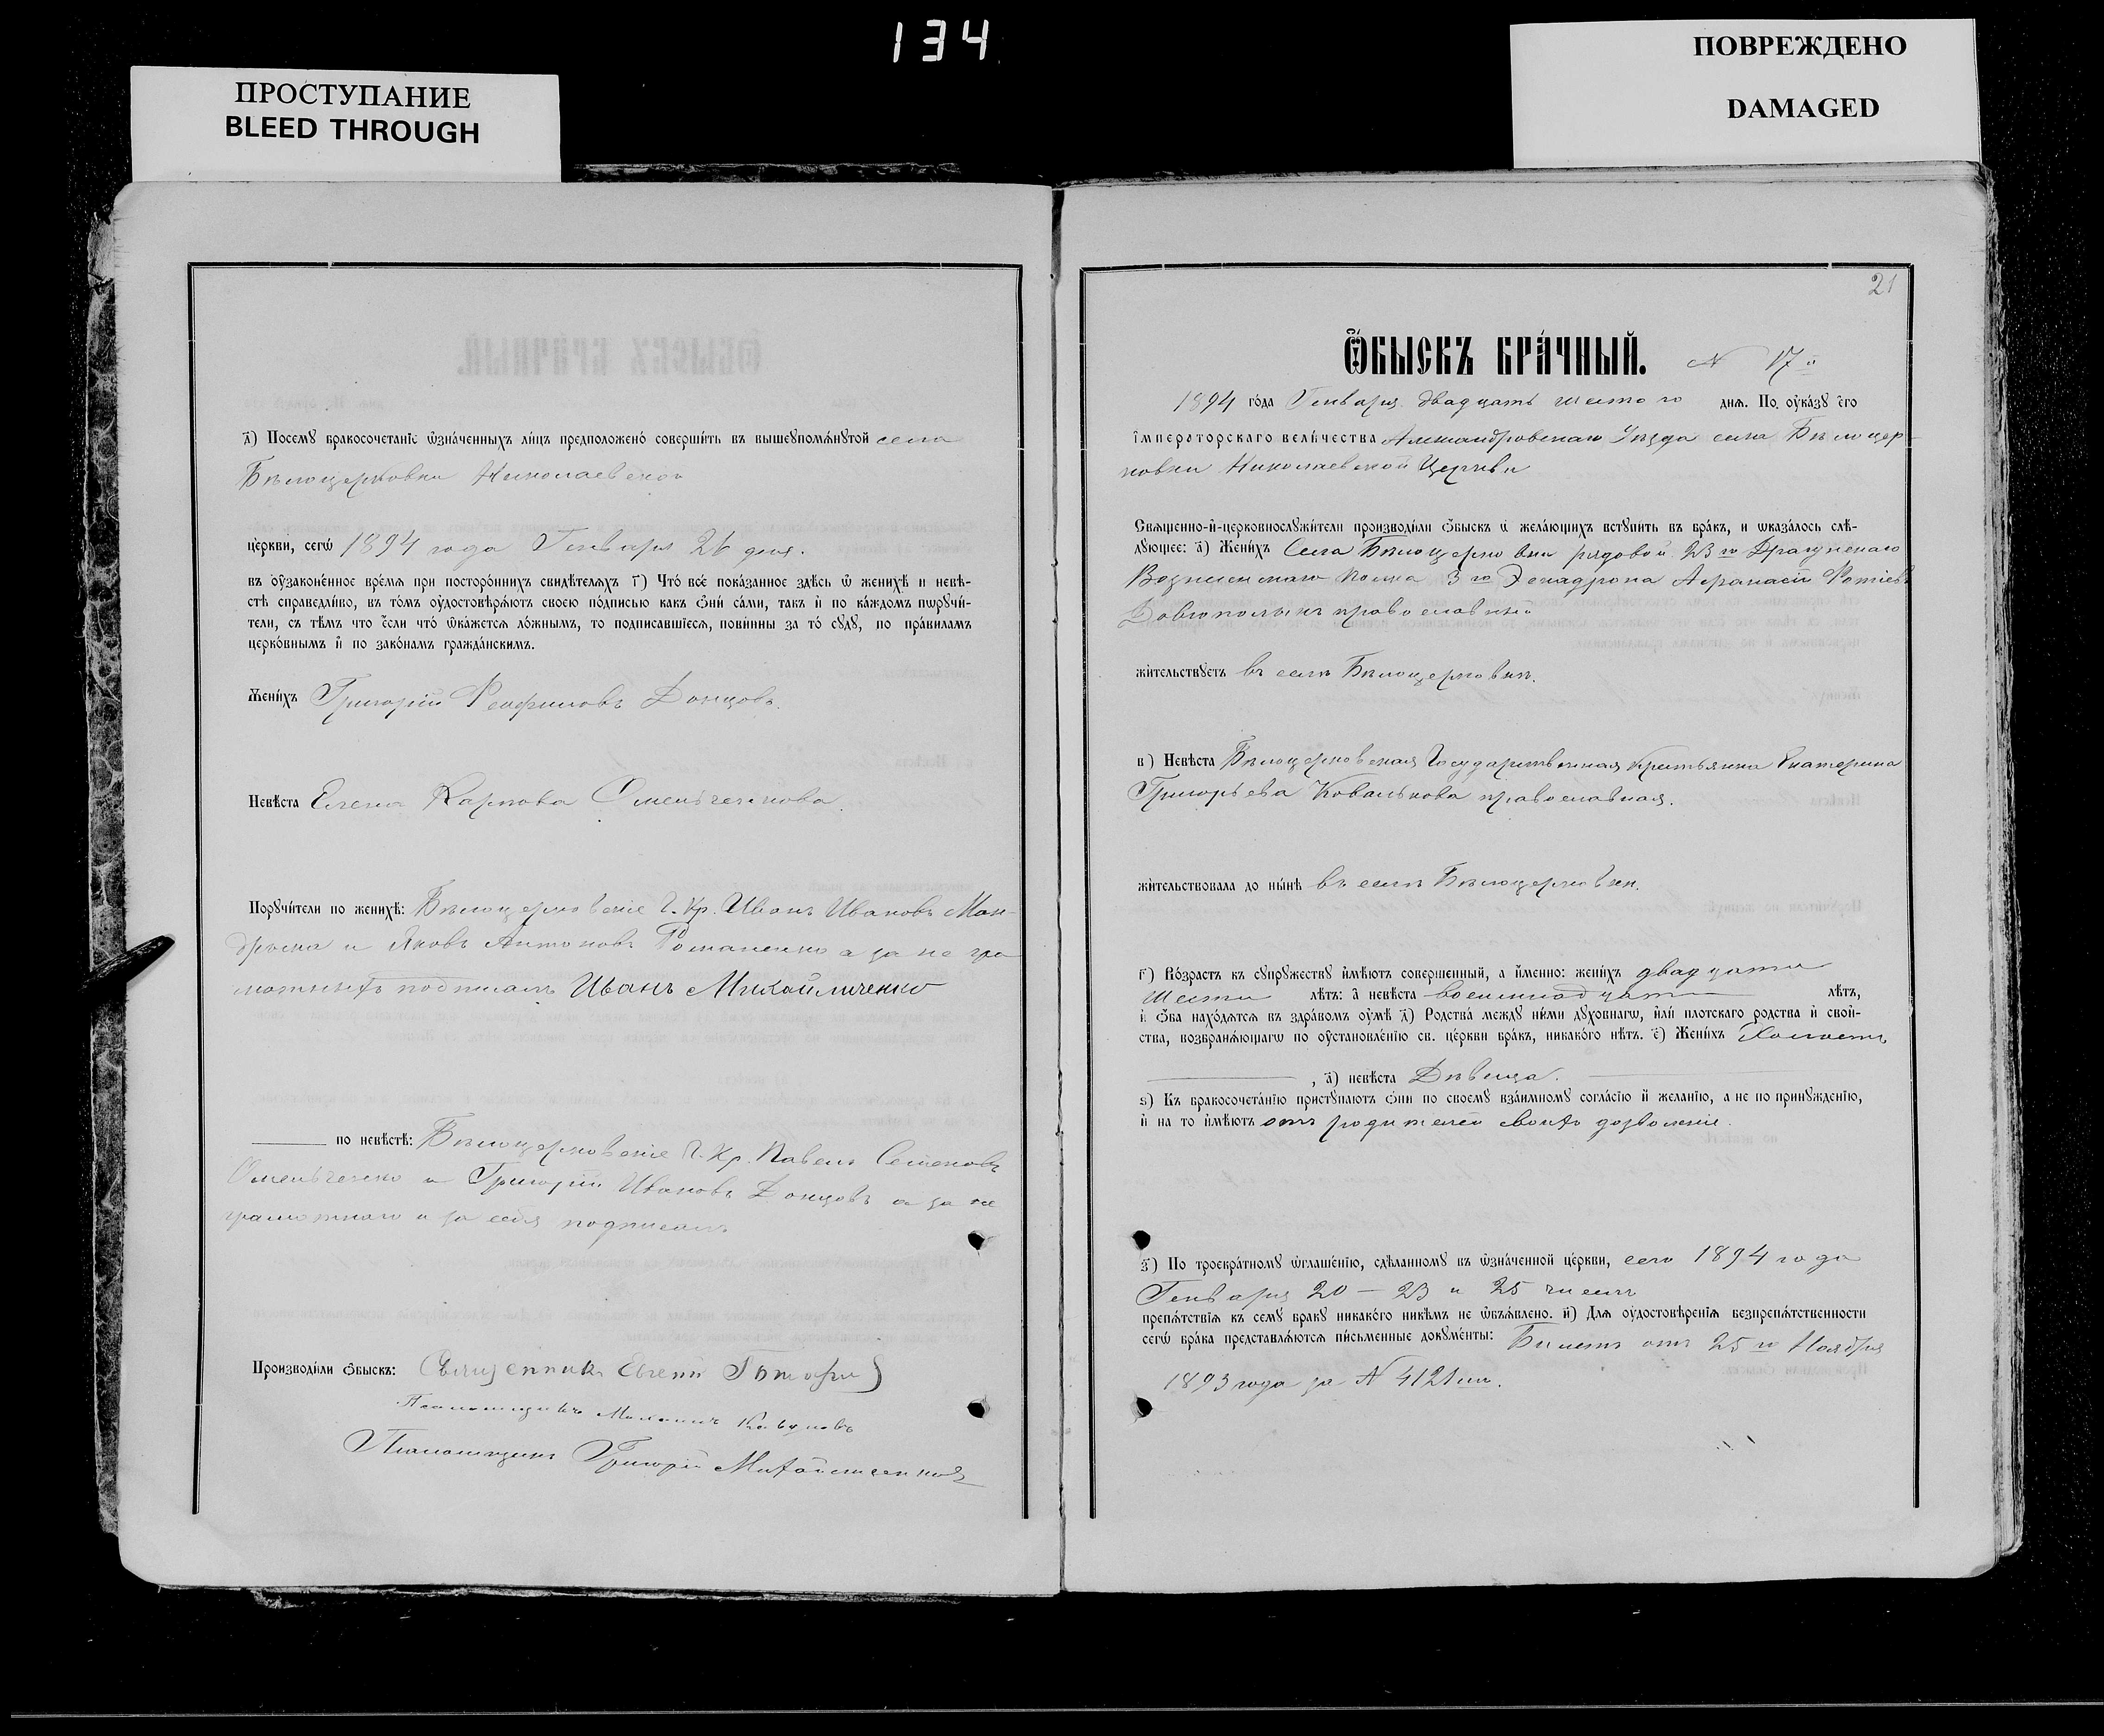 134
ПРОСТУПАНИЕ
BLEED THROUGH
ПОВРЕЖДЕНО
DAMAGED
д҃) Посемꙋ бракосочетанїе ѡзна́ченныхъ ли́цъ предположено̀ соверши́ть въ вышеꙋпомѧ́нꙋтой села
Бѣлоцерковки Николаевской
це́ркви, сегѡ̀ 1894 года Генваря 26 дня.
въ ᲂу҆зако́ненное вре́мѧ при посторо́ннихъ свидѣ́телѧхъ г҃) Что̀ всѐ пока́занное здѣ́сь ѡ женихѣ̀ и невѣ́-
стѣ справедли́во, въ то́мъ ᲂу҆достовѣрѧ́ютъ своею по́дписью какъ ѻнѝ са́ми, такъ и҆ по ка́ждомъ порꙋчи́-
тели, съ тѣ́мъ что є҆́сли что̀ ѡка́жетсѧ ло́жнымъ, то подписавшїесѧ, пови́нны за то̀ сꙋдꙋ̀, по пра́виламъ
церко́внымъ и҆ по зако́намъ гражда́нскимъ.
Жени́хъ Григорій Феофиловъ Донцовъ.
Невѣ́ста Елена Карпова Омельченкова.
Порꙋчи́тели по женихѣ̀: Бѣлоцерковскіе Г. Кр. Иванъ Ивановъ Ман-
дрыка и Яковъ Антоновъ Романенко а за не гра
мотныхъ подписалъ Иванъ Михайличенко
по невѣ́стѣ: Бѣлоцерковскіе Г. Кр. Павелъ Семеновъ
Омельченко и Григорій Ивановъ Донцовъ а за не
грамотнаго и за себя подписалъ
Производи́ли ѻбыскъ: Священникъ Евгеній
Псаломщикъ
Псаломщикъ Григорій Михайличенковъ
21
Ѻ҆бы́скъ бра́чный. N 17й
1894 го́да Генваря двадцать шестого днѧ. По ᲂу҆ка́зꙋ є҆гѡ̀
і҆мпера́торскаго вели́чества Александровскаго Уѣзда села Бѣлоцер-
ковки Николаевской Церкви
Свѧще́нно-и҆-церковнослꙋжи́тели производи́ли ѻбыскъ ѡ жела́ющихъ встꙋпи́ть въ бра́къ, и ѡказа́лось слѣ́-
дꙋющее: а҃) Жени́хъ Села Бѣлоцерковки рядовой 23го Драгунскаго
Вознесенскаго полка 3го Эскадрона Афанасій Фотіевъ
Довгополыкъ православный
жи́тельствꙋетъ въ селѣ Бѣлоцерковкѣ.
в҃) Невѣ́ста Бѣлоцерковская Государственная крестьянка Екатерина
Григорьева Ковалькова православная.
жи́тельствовала до ны́нѣ въ селѣ Бѣлоцерковкѣ.
г҃) Во́зрастъ къ сꙋпрꙋжествꙋ и҆мѣ́ютъ соверше́нный, а и҆́менно: жени́хъ двадцати
шести лѣ́тъ: а҆ невѣ́ста восемнадцати лѣ́тъ,
и҆ ѻ́ба нахо́дѧтсѧ въ здра́вомъ ᲂу҆мѣ̀ д҃) Родства̀ междꙋ ни́ми дꙋхо́внагѡ, и҆лѝ пло́тскаго родства̀ и҆ свой-
ства̀, возбранѧ́ющагѡ по ᲂу҆становле́нїю св. це́ркви бра́къ, никако́го нѣ́тъ. є҃) Жени́хъ Холостъ
, а҆) невѣ́ста Дѣвица.
ѕ҃) Къ бракосочета́нїю пристꙋпаютъ ѻнѝ по своемꙋ взаи́мномꙋ согла́сїю и҆ жела́нїю, а не по принꙋжде́нїю,
и҆ на то и҆мѣ́ютъ отъ родителей своихъ дозволеніе.
з҃) По троекра́тномꙋ ѡглаше́нїю, сдѣ́ланномꙋ въ ѡзна́ченной це́ркви, сего 1894 года
Генваря 20 – 23 и 25 чиселъ
препѧ́тствїѧ къ семꙋ̀ бра́кꙋ никако́го никѣ́мъ не ѡбъѧ́влено. и҃) Длѧ ᲂу҆достовѣре́нїѧ безпрепѧ́тственности
сегѡ̀ бра́ка представлѧ́ютсѧ пи́сьменные докꙋме́нты: Билетъ отъ 25го Ноября
1893 года за N 4121мъ.